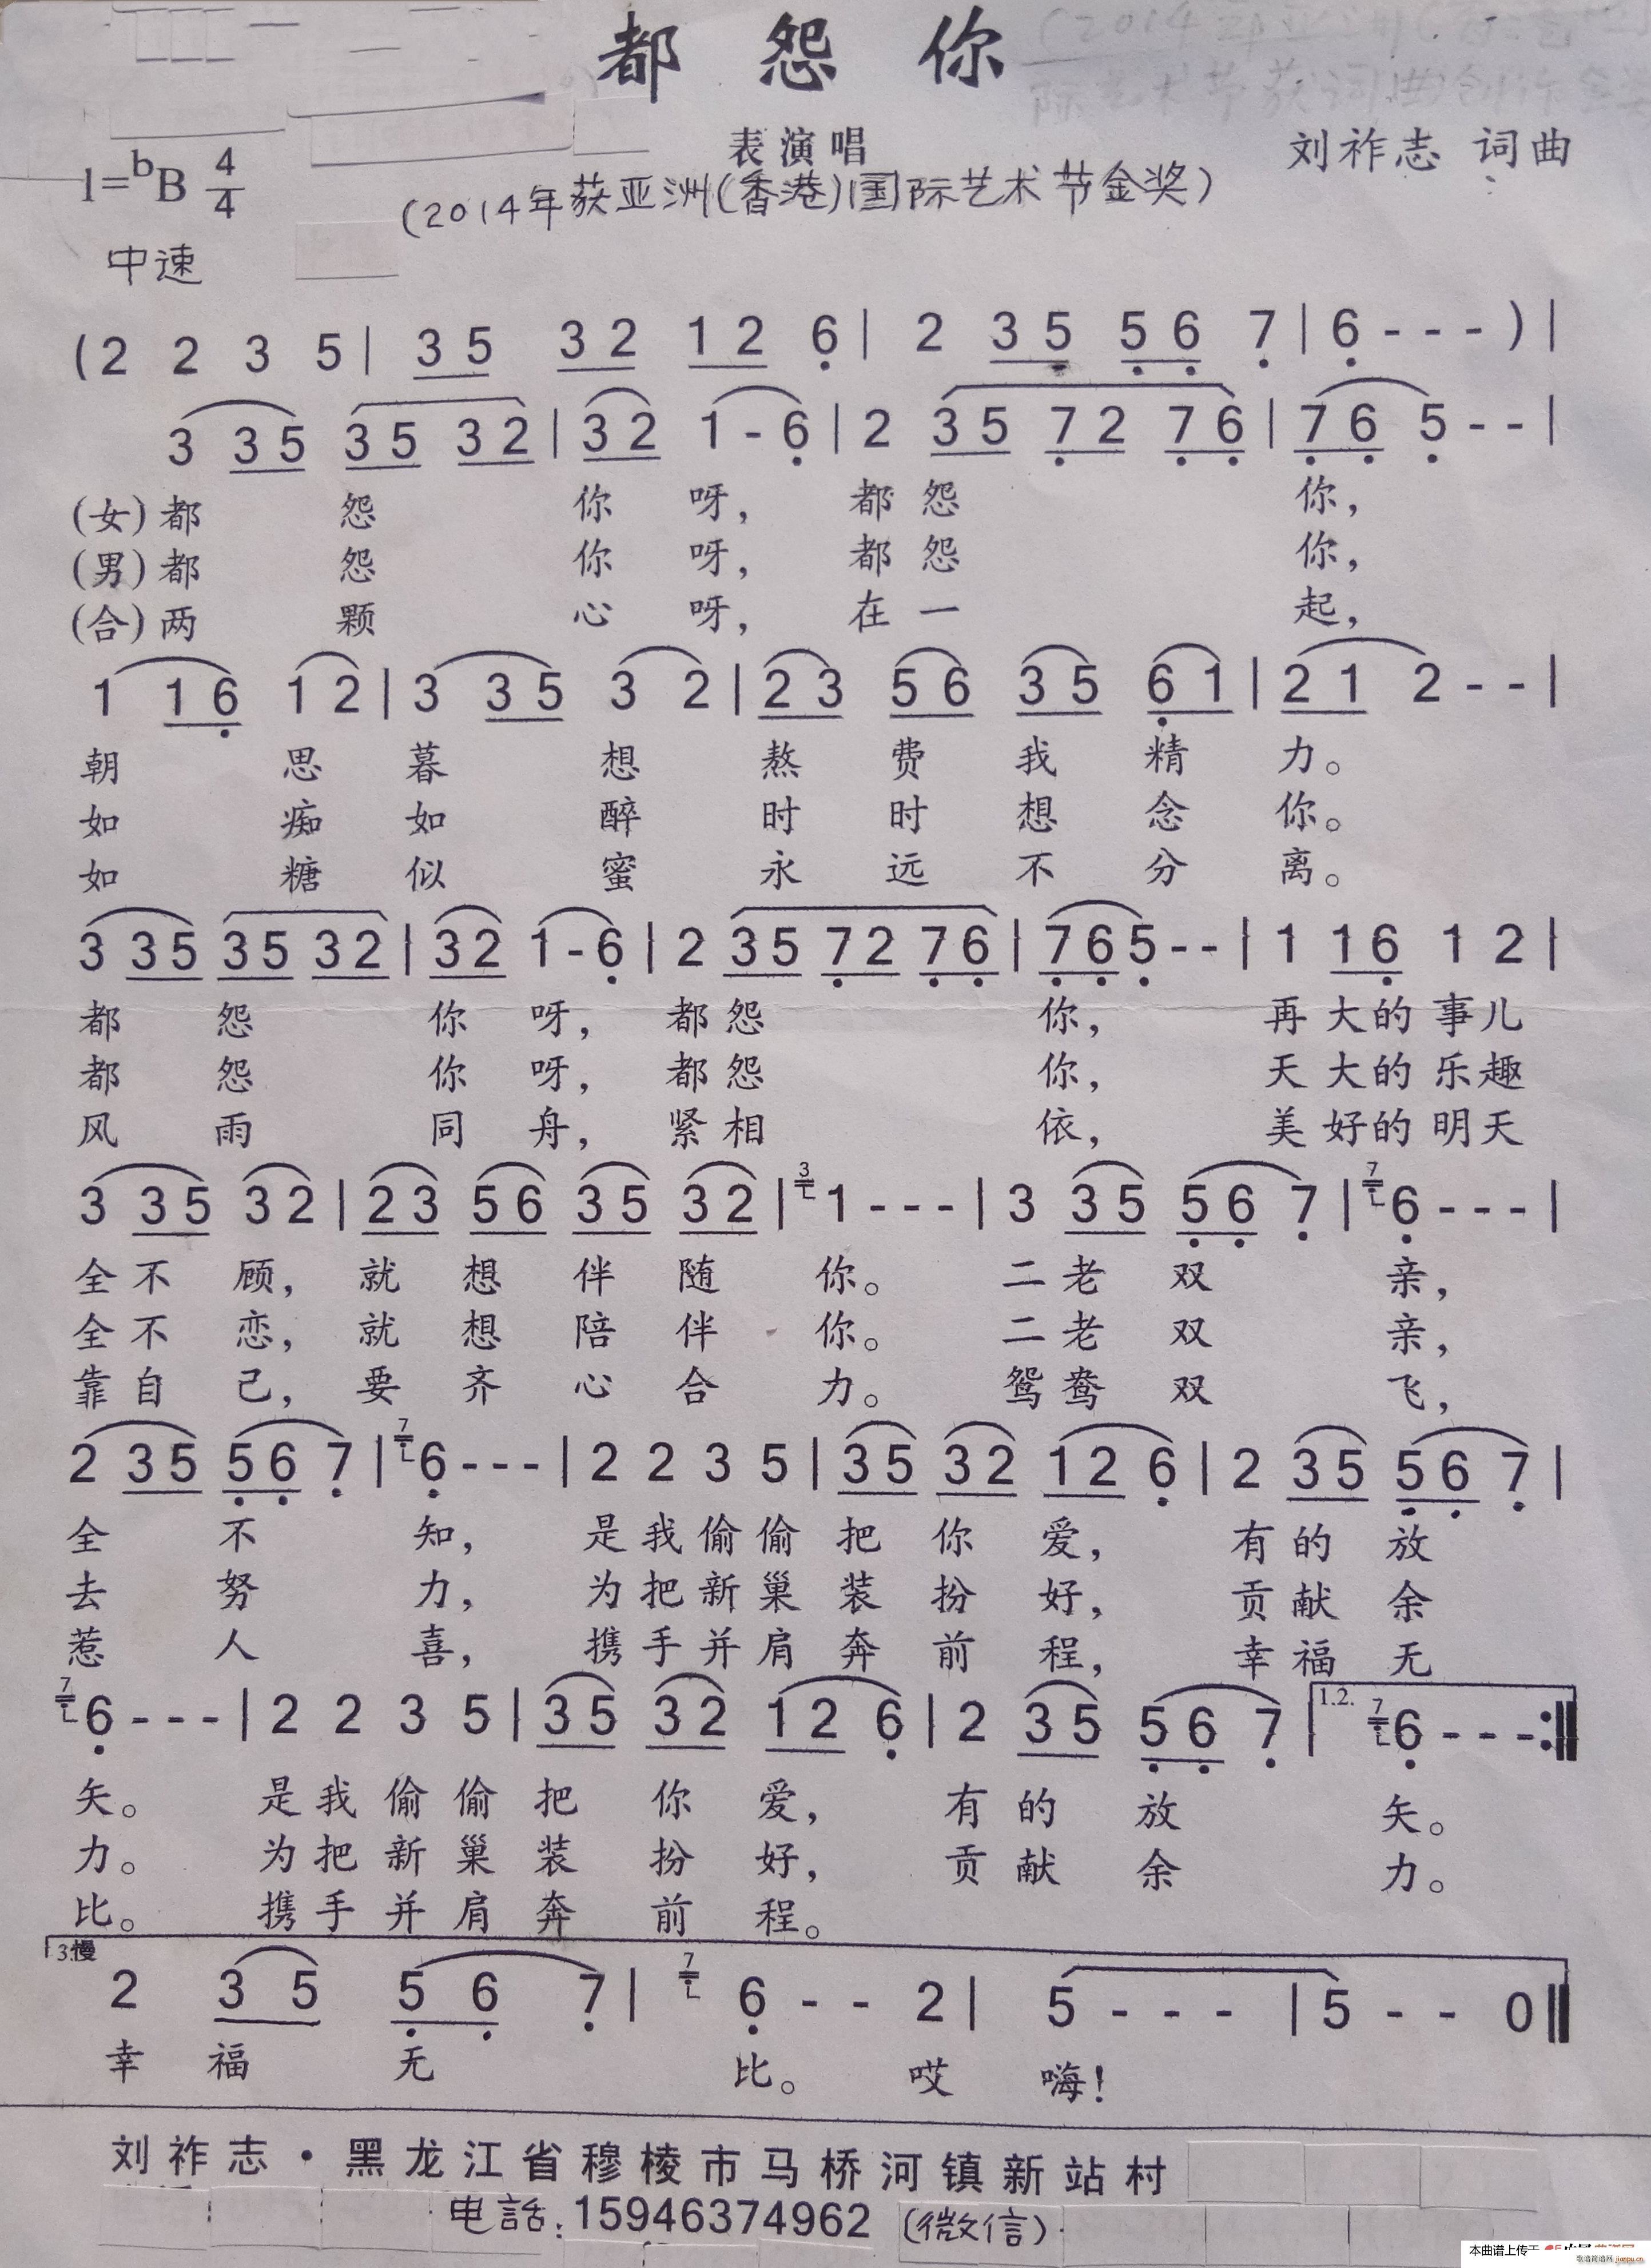 都怨你
表演唱
刘祚志 词曲
1=bB 4/4
(2014年获亚洲(香港)国际艺术节金奖)
中速
(2 2 3 5 | 3 5 3 2 1 2 6 | 2 3 5 5 6 7 | 6 - - - ) |
3 3 5 3 5 3 2 | 3 2 1 - 6 | 2 3 5 7 2 7 6 | 7 6 5 - - |
(女)都 怨 你 呀, 都 怨 你,
(男)都 怨 你 呀, 都 怨 你,
(合)两 颗 心 呀, 在 一 起,
1 1 6 1 2 | 3 3 5 3 2 | 2 3 5 6 3 5 6 1 | 2 1 2 - - |
朝 思 暮 想 熬 费 我 精 力。
如 痴 如 醉 时 时 想 念 你。
如 糖 似 蜜 永 远 不 分 离。
3 3 5 3 5 3 2 | 3 2 1 - 6 | 2 3 5 7 2 7 6 | 7 6 5 - - | 1 1 6 1 2 |
都 怨 你 呀, 都 怨 你, 再 大 的 事 儿
都 怨 你 呀, 都 怨 你, 天 大 的 乐 趣
风 雨 同 舟, 紧 相 依, 美 好 的 明 天
3 3 5 3 2 | 2 3 5 6 3 5 3 2 | 3 1 - - - | 3 3 5 5 6 7 | 7 6 - - - |
全 不 顾, 就 想 伴 随 你。 二 老 双 亲,
全 不 恋, 就 想 陪 伴 你。 二 老 双 亲,
靠 自 己, 要 齐 心 合 力。 鸳 鸯 双 飞,
2 3 5 5 6 7 | 7 6 - - - | 2 2 3 5 | 3 5 3 2 1 2 6 | 2 3 5 5 6 7 |
全 不 知, 是 我 偷 偷 把 你 爱, 有 的 放
去 努 力, 为 把 新 巢 装 扮 好, 贡 献 余
惹 人 喜, 携 手 并 肩 奔 前 程, 幸 福 无
7 6 - - - | 2 2 3 5 | 3 5 3 2 1 2 6 | 2 3 5 5 6 7 | 1.2. 7 6 - - - :‖
矢。 是 我 偷 偷 把 你 爱, 有 的 放 矢。
力。 为 把 新 巢 装 扮 好, 贡 献 余 力。
比。 携 手 并 肩 奔 前 程。
3.慢
2 3 5 5 6 7 | 7 6 - - 2 | 5 - - - | 5 - - 0 ‖
幸 福 无 比。 哎 嗨!
刘祚志·黑龙江省穆棱市马桥河镇新站村
电話:15946374962 (微信)
本曲谱上传于
歌谱简谱网
jianpu.cn